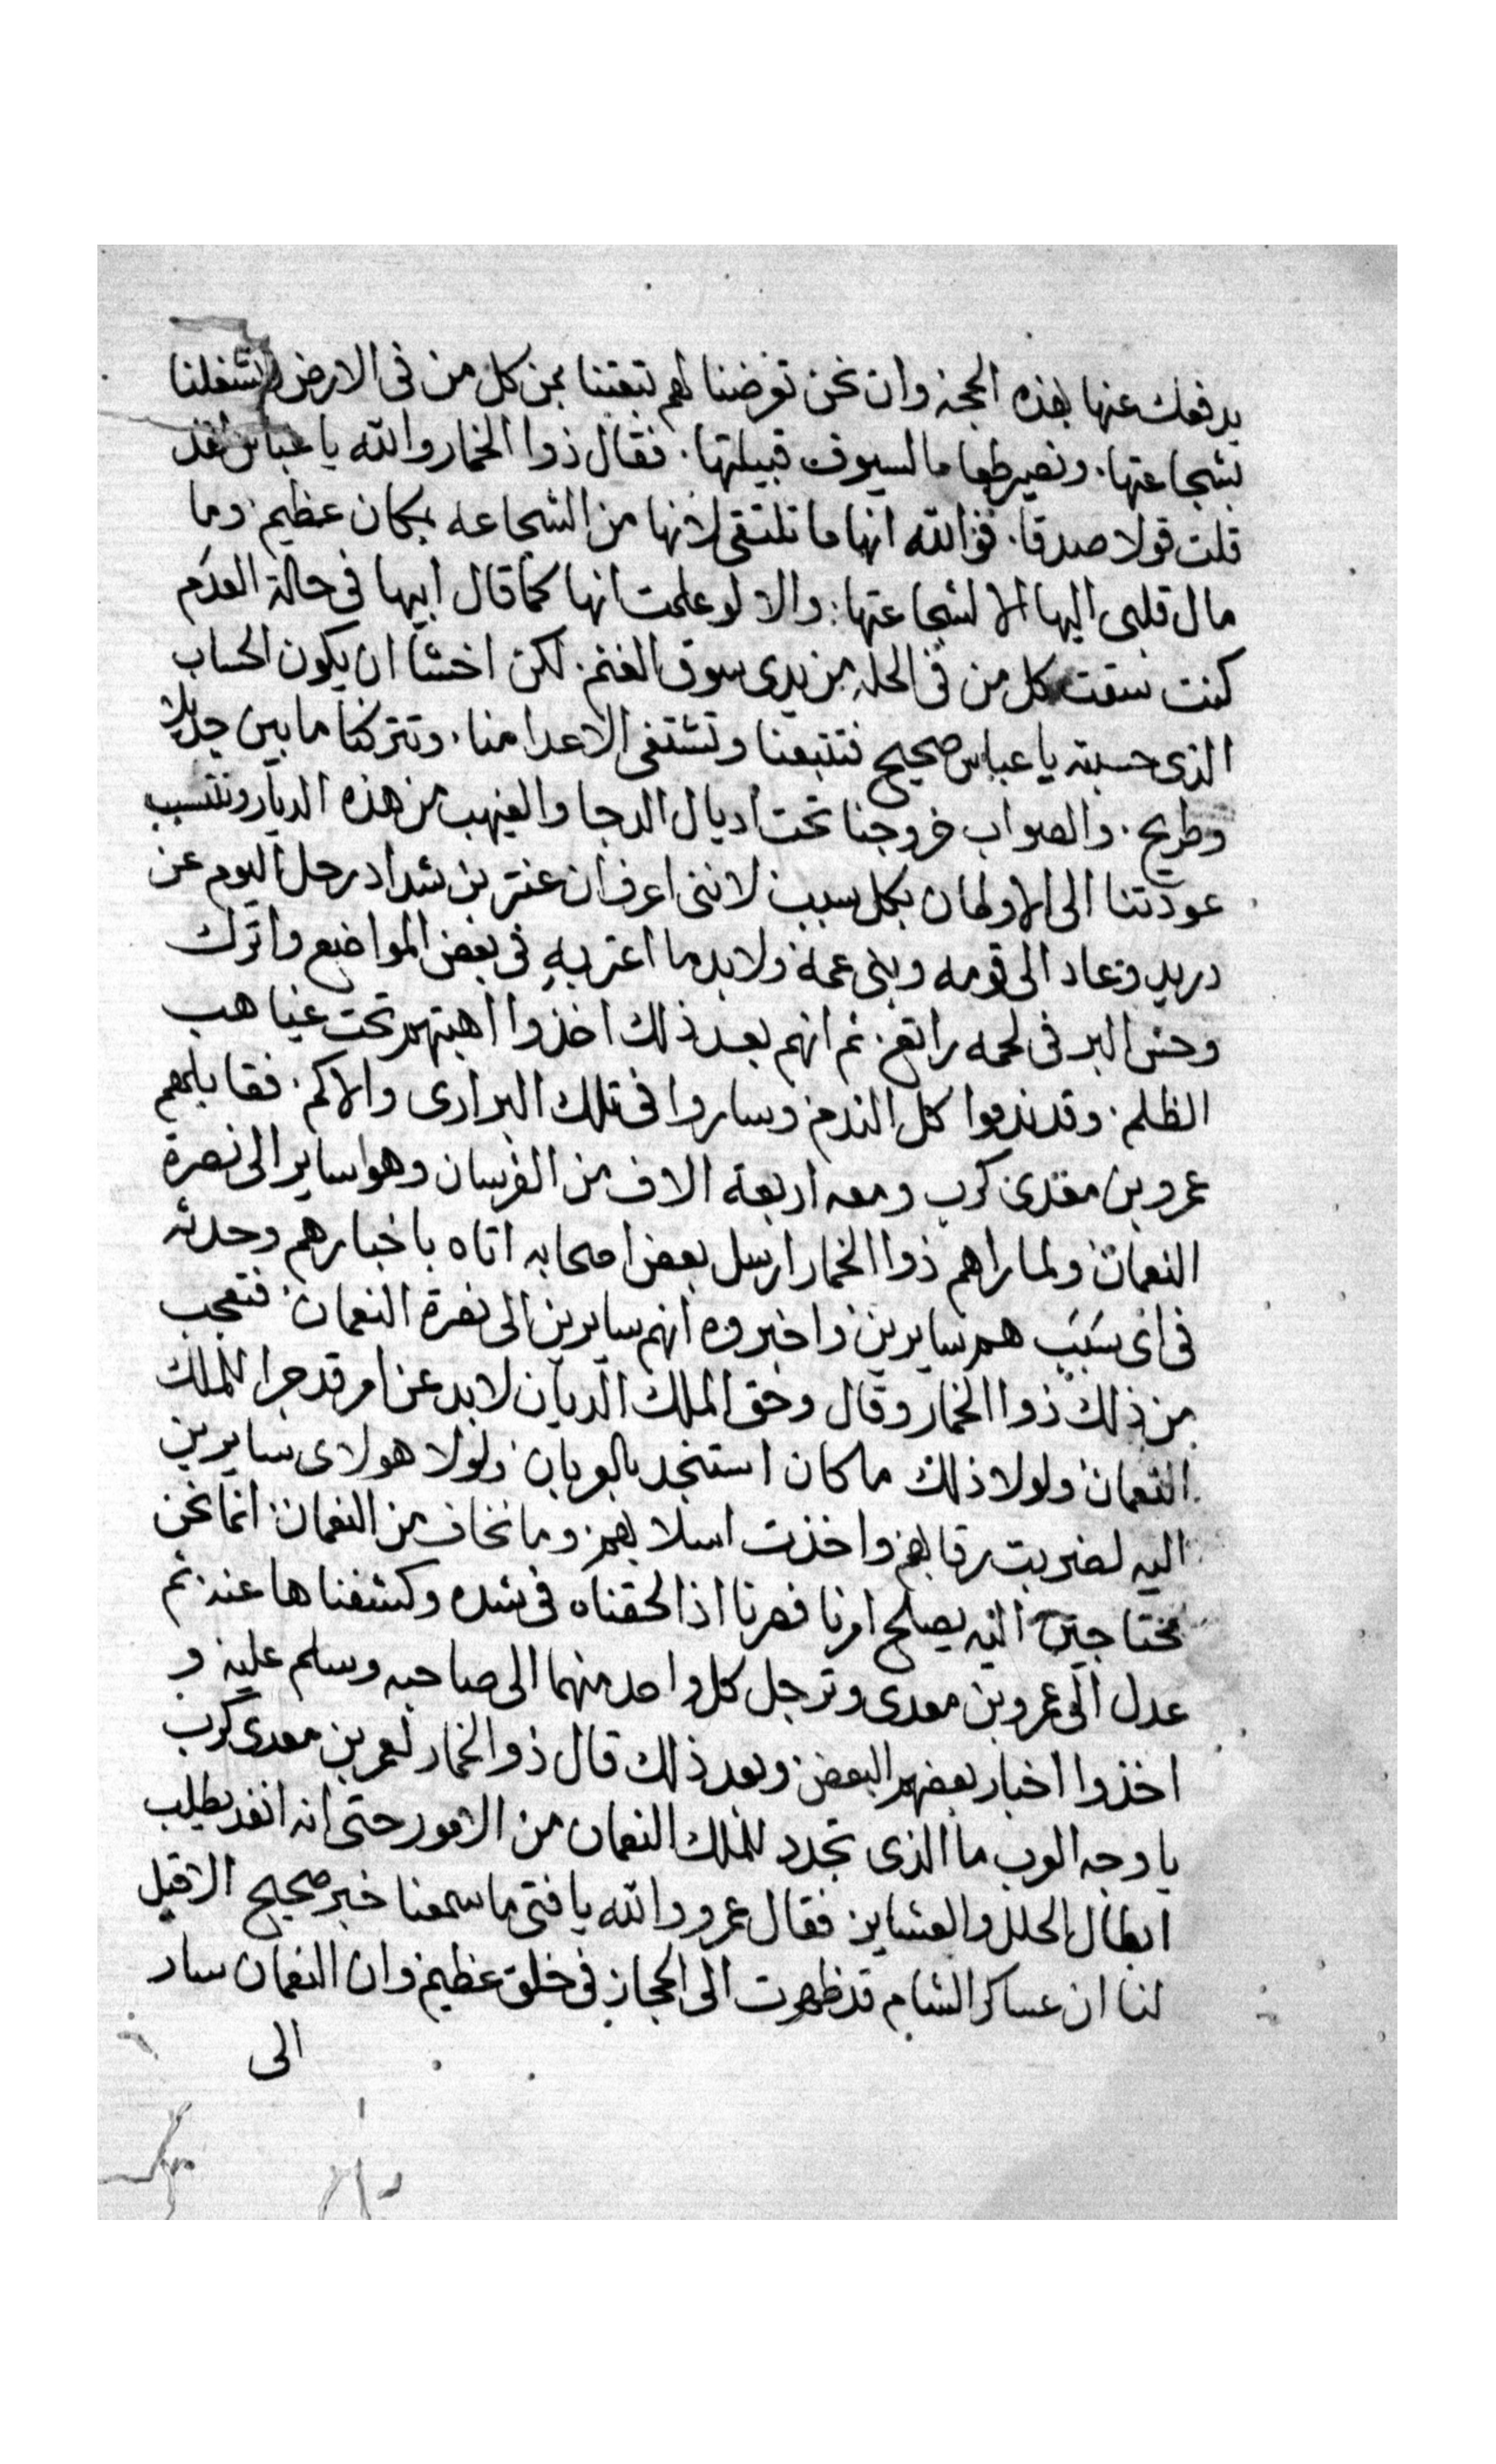 يدفعك عنها بهذه الحجه وان نحن تعرضنا لهم تبعتنا بمن كل من فى الارض وتشغلنا
بشجاعتها. ونصير طعاما لسيوف قبيلتها. فقال ذوا الخمار والله يا عباس لقد
قلت قولا صدقا. فوالله انها ما تلتقى لانها من الشجاعه بمكان عظيم وما
مال قلبى اليها الا لشجاعتها. والا لو علمت انها كما قال ابيها فى حالة العدم
كنت سقت كل من فى الحله بين يدى سوق الغنم. لكن اخشا ان يكون الحساب
الذى حسبته يا عباس صحيح فتتبعنا وتشتفى الاعدا منا. وتتركنا ما بين جديل
وطريح. والصواب خروجنا تحت اديال الدجا والغيهب من هذه الديار ونتسبب
عودتنا الى الاوطان بكل سبب لاننى اعرف ان عنتر بن شداد رحل اليوم عن
دريد وعاد الى قومه وبنى عمه ولا بد ما اعتر به فى بعض المواضع واترك
وحش البر فى لحمه راتع. ثم انهم بعد ذلك اخذوا اهبتهم تحت غياهب
الظلم. وقد ندموا كل الندم وساروا فى تلك البرارى والاكم. فقابلهم
عمرو بن معدى كرب ومعه اربعة الاف من الفرسان وهوا ساير الى نصرة
النعمان ولما راهم ذوا الخمار ارسل بعض اصحابه اتاه باخبارهم وحدثه
فى اى سبب هم سايرين واخبروه انهم سايرين الى نصرة النعمان فتعجب
من ذلك ذوا الخمار وقال وحق الملك الديان لابد عن امر قد جرا للملك
النعمان ولولا ذلك ما كان استنجد بالعربان ولولا هولاى سايرين
اليه لضربت رقابهم واخذت اسلابهم وما نخاف من النعمان انما نحن
محتاجين اليه يصلح امرنا فهرنا اذا لحقناه فى شده وكشفناها عنه ثم
عدل الى عمرو بن معدى وترجل كل واحد منهما الى صاحبه وسلم عليه و
اخذوا اخبار بعضهم البعض وبعد ذلك قال ذو الخمار لعمر بن معدى كرب
يا وجه العرب ما الذى تجدد للملك النعمان من الامور حتى انه انفد يطلب
ابطال الحلل والعشاير فقال عمرو والله يا فتى ما سمعنا خبر صحيح الا قيل
لنا ان عساكر الشام قد ظهرت الى الحجاز فى خلق عظيم وان النعمان سار
الى